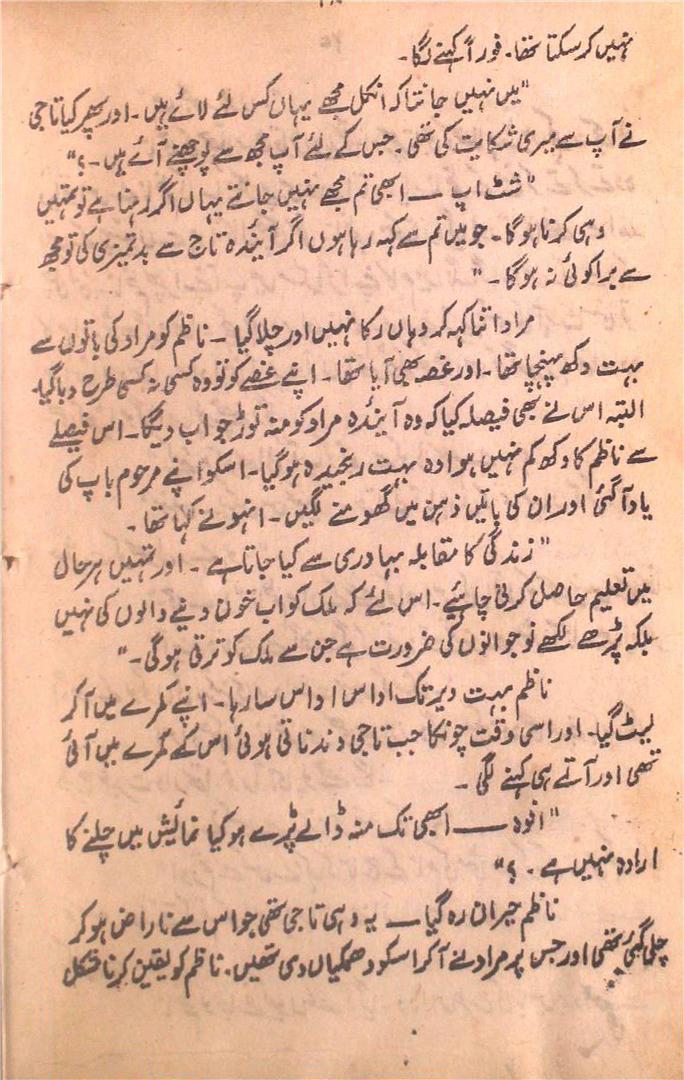 نہیں کر سکتا تھا۔ فوراً کہنے لگا۔
"میں نہیں جانتا کہ انکل مجھے یہاں کس لئے لائے ہیں۔ اور پھر کیا تاجی
نے آپ سے میری شکایت کی تھی۔ جس کے لئے آپ مجھ سے پوچھنے آئے ہیں۔؟"
"شٹ اپ ـــ ابھی تم مجھے نہیں جانتے یہاں اگر رہنا ہے تو تمہیں
وہی کرنا ہوگا۔ جو میں تم سے کہہ رہا ہوں اگر آئندہ تاج سے بدتمیزی کی تو مجھ
سے برا کوئی نہ ہوگا۔"
مراد اتنا کہہ کر وہاں رکا نہیں اور چلا گیا ۔ ناظم کو مراد کی باتوں سے
بہت دکھ پہنچا تھا۔ اور غصہ بھی آیا تھا۔ اپنے غصے کو تو وہ کسی نہ کسی طرح دبا گیا۔
البتہ اس نے بھی فیصلہ کیا کہ وہ آیندہ مراد کو منہ توڑ جواب دیگا۔ اس فیصلے
سے ناظم کا دکھ کم نہیں ہوا وہ بہت رنجیدہ ہوگیا۔ اسکو اپنے مرحوم باپ کی
یاد آگئی اور ان کی باتیں ذہن میں گھومنے لگیں۔ انہو نے کہا تھا۔
"زندگی کا مقابلہ بہادری سے کیا جاتا ہے ۔ اور تمہیں ہر حال
میں تعلیم حاصل کرنی چاہیئے۔ اس لئے کہ ملک کو اب خون دینے والوں کی نہیں
بلکہ پڑھے لکھے نوجوانوں کی ضرورت ہے جن سے ملک کو ترقی ہوگی۔"
ناظم بہت دیر تک اداس اداس سا رہا۔ اپنے کمرے میں آکر
لیٹ گیا۔ اور اسی وقت چونکا جب تاجی دندناتی ہوئی اس کے کمرے میں آئی
تھی اور آتے ہی کہنے لگی ۔
"افوہ ـــ ابھی تک منہ ڈالے پڑے ہو کیا نمائیش میں چلنے کا
ارادہ نہیں ہے ۔؟"
ناظم حیران رہ گیا ـــ یہ وہی تاجی تھی جو اس سے ناراض ہو کر
چلی گئی تھی اور جس پر مراد نے آکر اسکو دھمکیاں دی تھیں۔ ناظم کو یقین کرنا مشکل